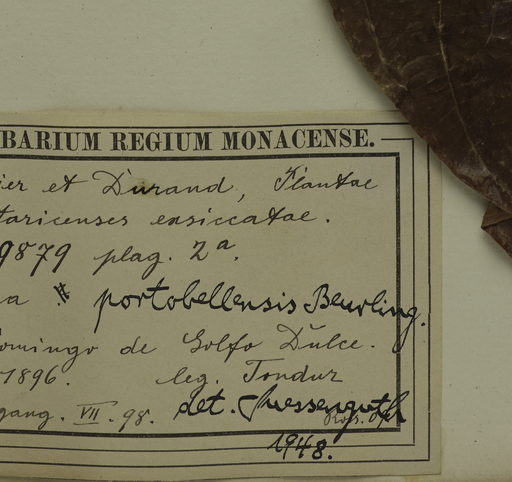 BARIUM REGIUM MONACENSE.
ier et Durand, Plantae
taricenses exsiccatae.
9879 plag. 2a.
a # portobellensis Beurling.
omingo de Golfo Dulce.
1896. leg. Tonduz
gang. VII. 98. det. Suessenguth
1948.